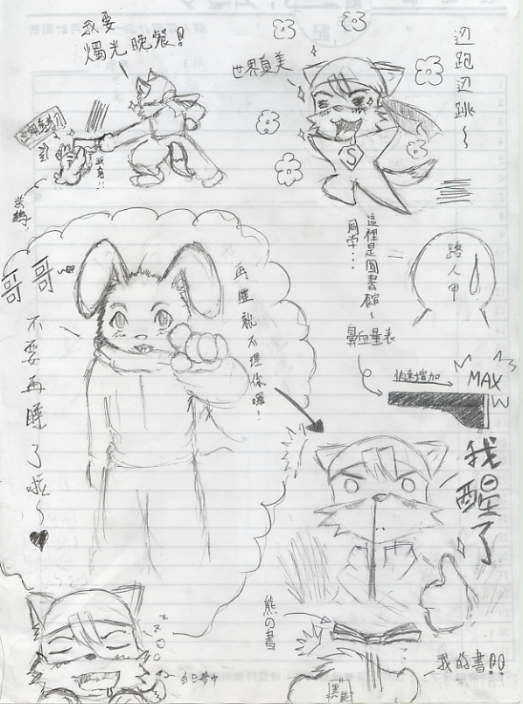 我要
燭光晚餐!
世界真美
边跑边跳~
這裡是圖書館~
同学...
路人甲
鼻血量表
快速增加
MAX
哥哥~
不要再睡了啦~♥
再睡就不理你囉!
我醒了
熊の書
我的書!!